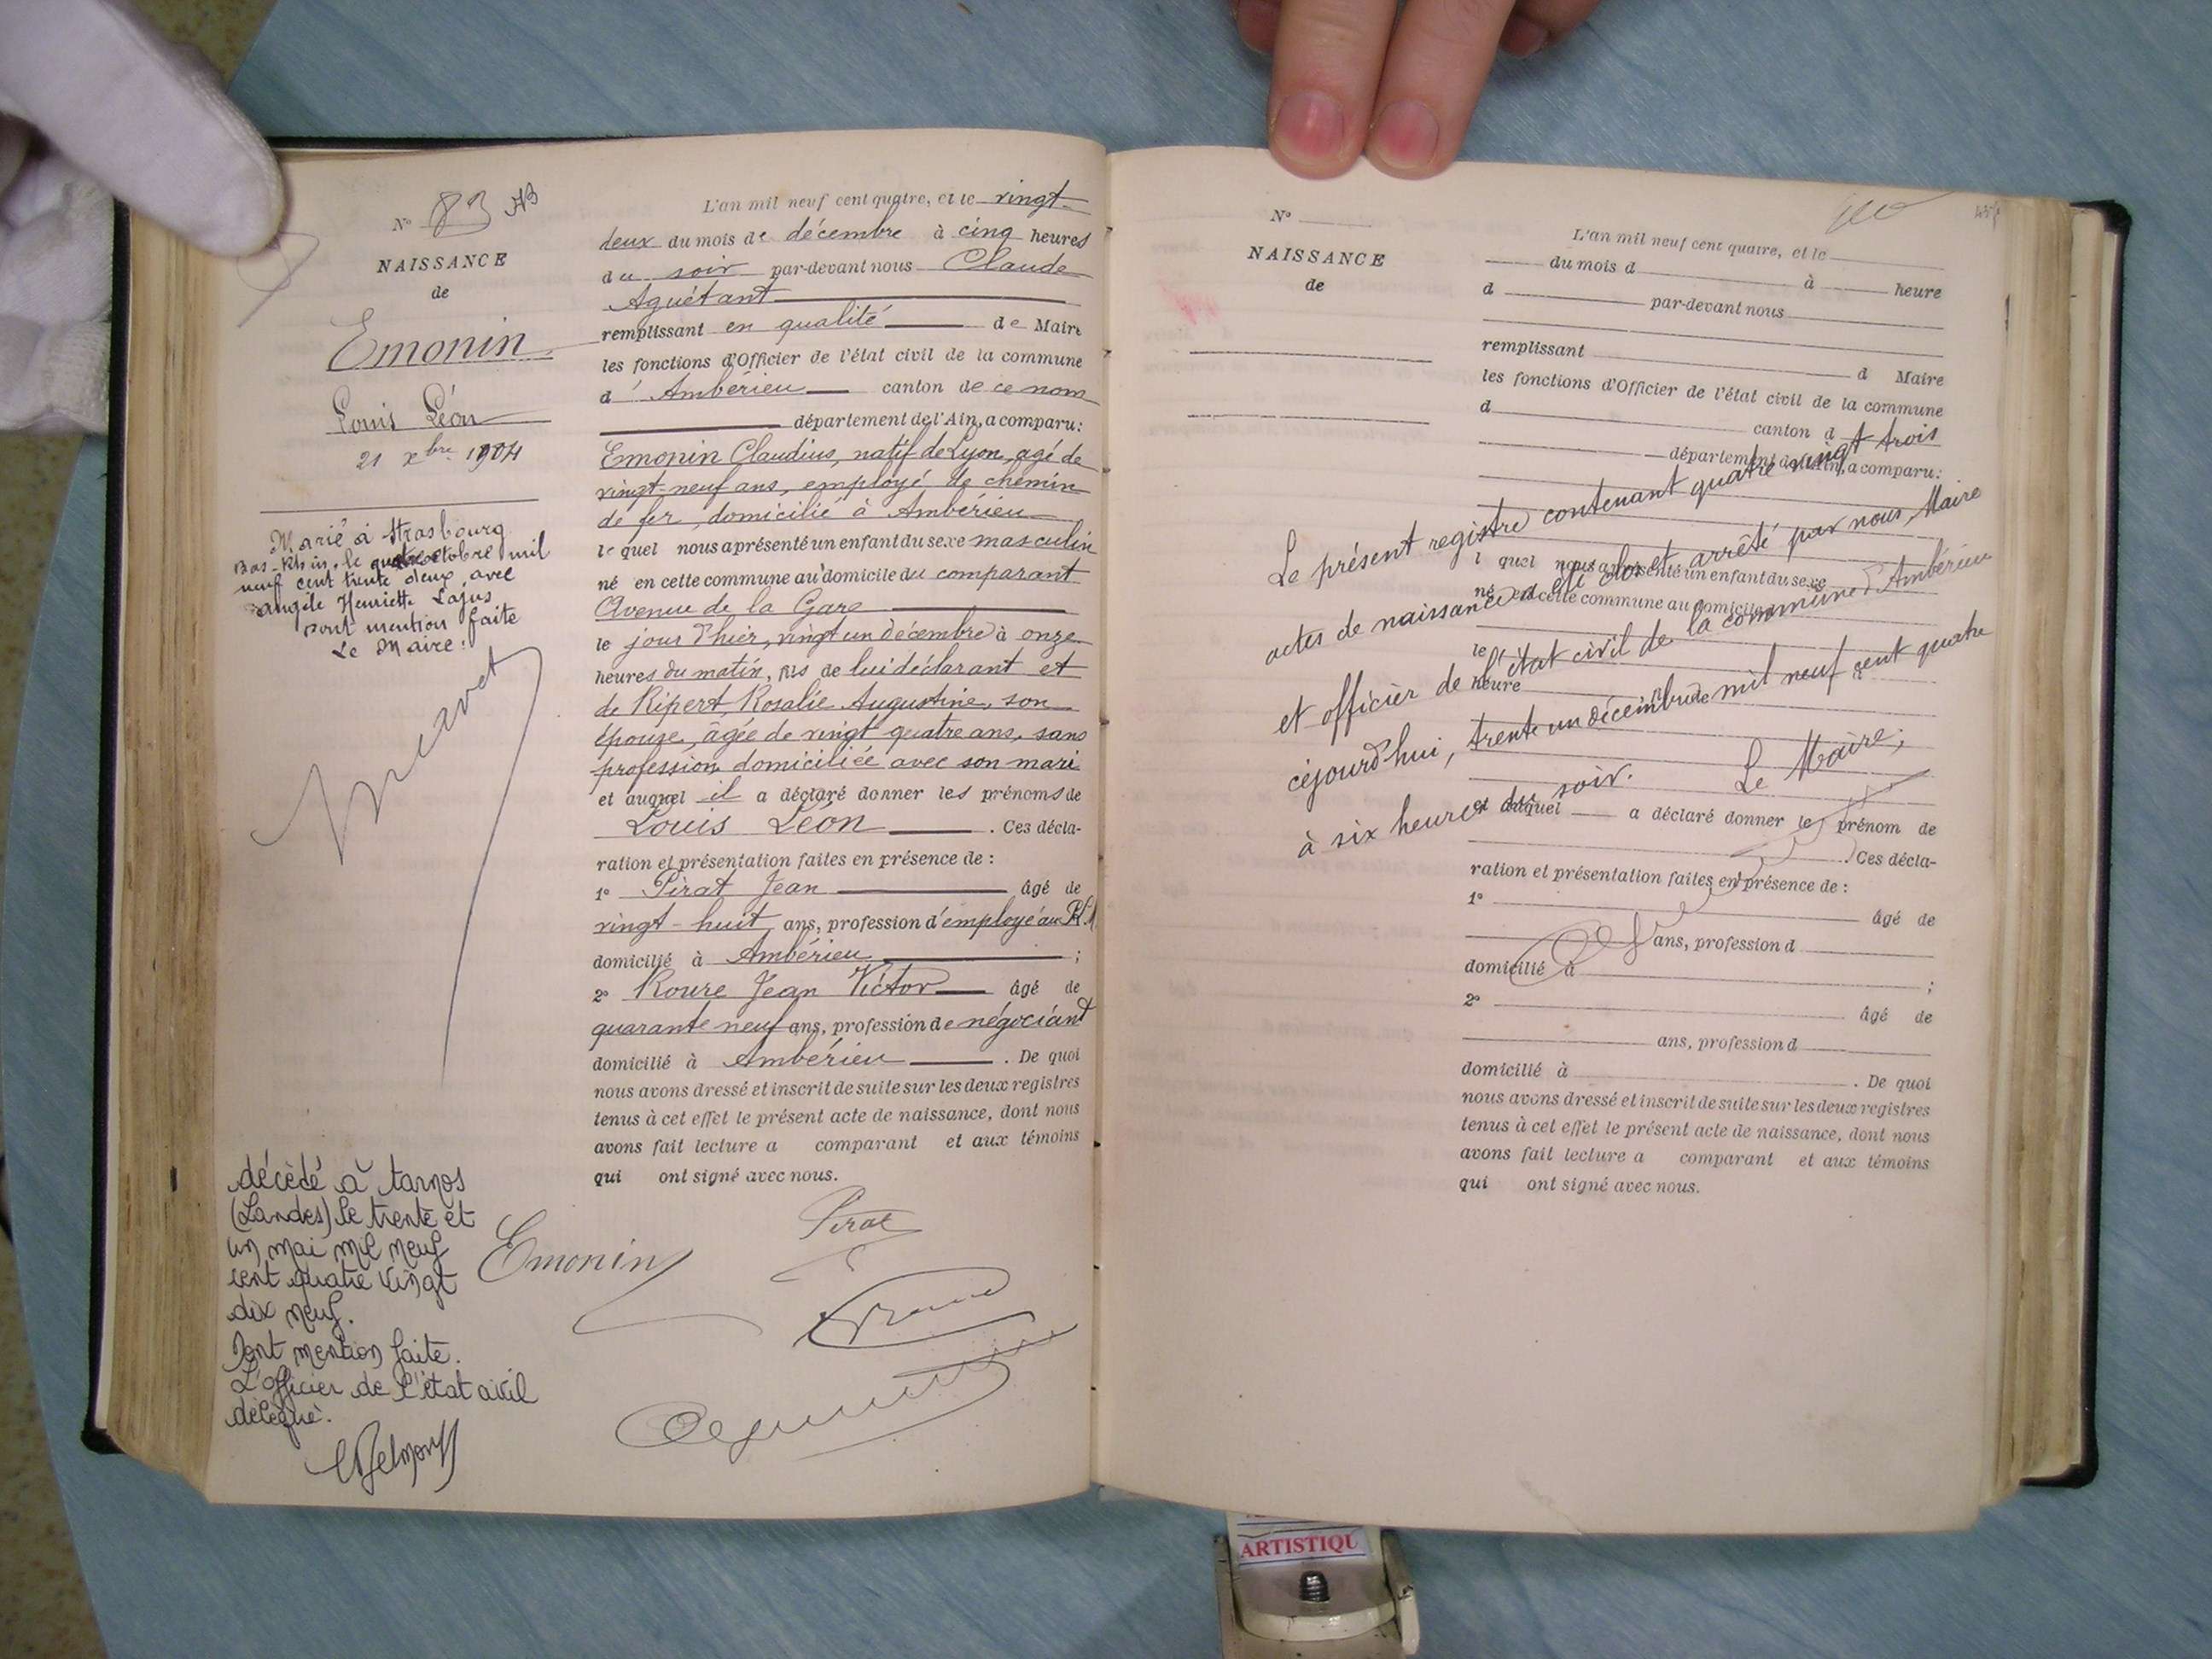 N° 83 AB
NAISSANCE
de
Emonin
Louis Léon
21 xbre 1904
Marié à Strasbourg
Bas-Rhin, le quatre octobre mil
neuf cent trente deux, avec
Angèle Henriette Lajus
dont mention faite
Le Maire:
décédé à Tarnos
(Landes) le trente et
un mai mil neuf
cent quatre vingt
dix neuf.
Dont mention faite.
L'officier de l'état civil
délégué.
L'an mil neuf cent quatre, et le vingt
deux du mois de décembre à cinq heures
du soir par-devant nous Claude
Aguétant
remplissant en qualité de Maire
les fonctions d'Officier de l'état civil de la commune
d'Ambérieu canton de ce nom
département de l'Ain, a comparu:
Emonin Claudius, natif de Lyon, agé de
vingt-neuf ans, employé de chemin
de fer, domicilié à Ambérieu
lequel nous a présenté un enfant du sexe masculin
né en cette commune au domicile du comparant
Avenue de la Gare
le jour d'hier, vingt un décembre à onze
heures du matin, fils de lui déclarant et
de Ripert, Rosalie Augustine, son
épouse, âgée de vingt quatre ans, sans
profession domiciliée avec son mari
et auquel il a déclaré donner les prénoms de
Louis Léon . Ces décla-
ration et présentation faites en présence de :
1° Pirat Jean âgé de
vingt-huit ans, profession d'employé au P.L.M.
domicilié à Ambérieu ;
2° Roure Jean Victor âgé de
quarante neuf ans, profession de négociant
domicilié à Ambérieu . De quoi
nous avons dressé et inscrit de suite sur les deux registres
tenus à cet effet le présent acte de naissance, dont nous
avons fait lecture a comparant et aux témoins
qui ont signé avec nous.
Pirat
Emonin
N°
NAISSANCE
de
L'an mil neuf cent quatre, et le
du mois d à heure
d par-devant nous
remplissant d Maire
les fonctions d'Officier de l'état civil de la commune
d canton d
département de l'Ain, a comparu:
l quel nous a présenté un enfant du sexe
né en cette commune au domicile
le
heure
Le présent registre contenant quatre vingt trois
actes de naissance a été clos et arrêté par nous, Maire
et officier de l'état civil de la commune d'Ambérieu
cejourd'hui, trente un décembre mil neuf cent quatre
à six heures du soir. Le Maire;
et auquel a déclaré donner le prénom de
. Ces décla-
ration et présentation faites en présence de :
1° âgé de
ans, profession d
domicilié à ;
2° âgé de
ans, profession d
domicilié à . De quoi
nous avons dressé et inscrit de suite sur les deux registres
tenus à cet effet le présent acte de naissance, dont nous
avons fait lecture a comparant et aux témoins
qui ont signé avec nous.
ARTISTIQU